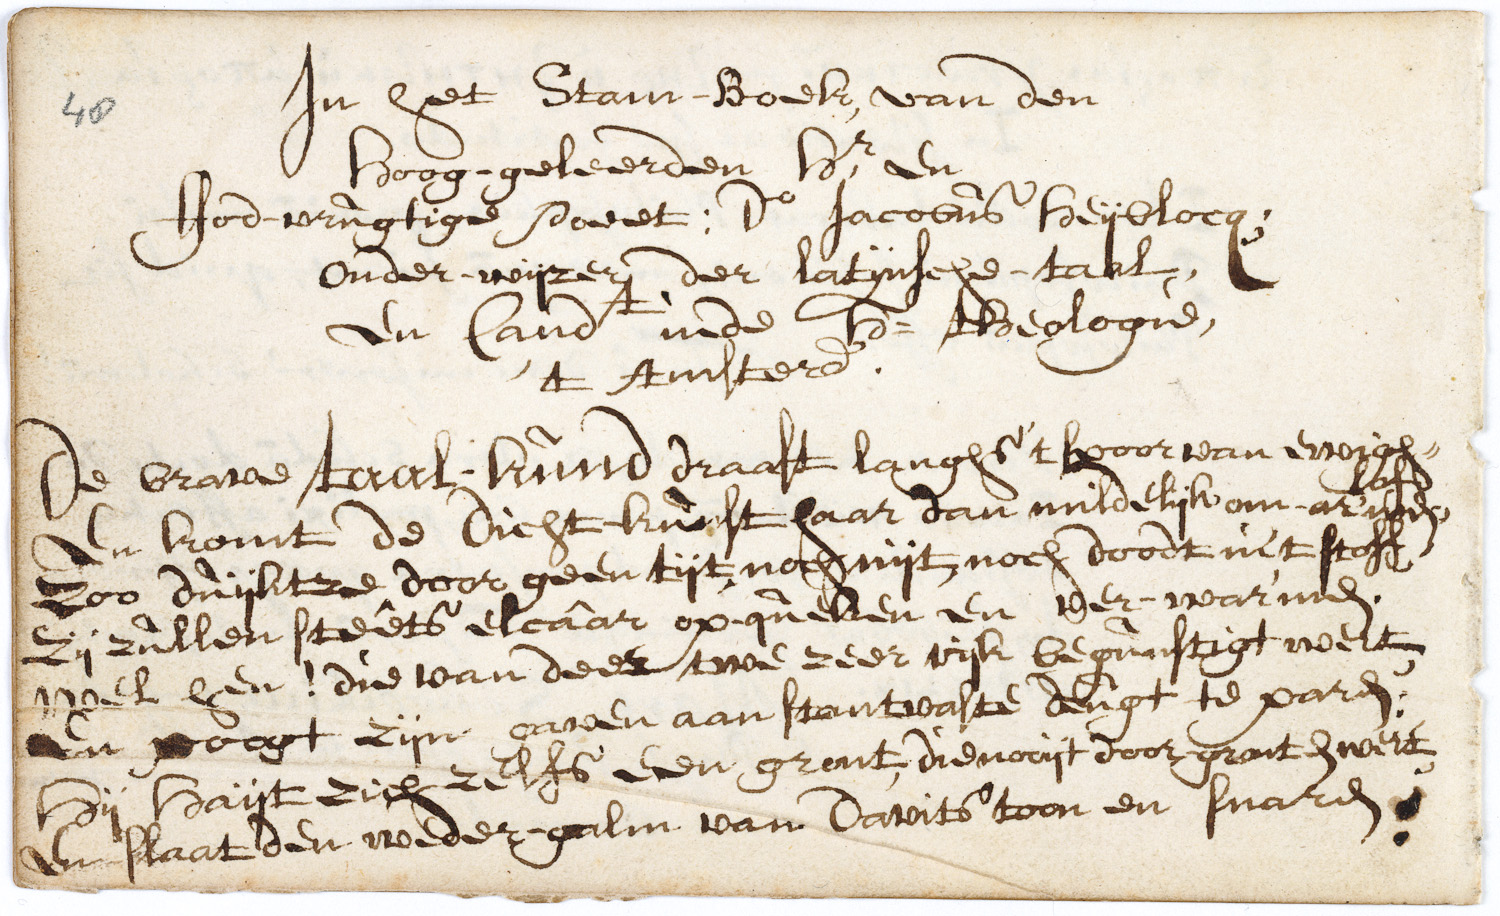 48
In het Stam-Boek, van den
Hoog-geleerden Hr. en
God-vrugtige Poeet: Do Jacobus Heyblocq,
Onder-wyzer der latynsche-taal,
en Candt inde H= Theologie,
't Amsterd.
De brave taal-kund draaft langhs 't spoor van ewigh-
lof,
En komt de Dicht-kunst haar dan mildelijk om-armen,
Zoo duijktze door geen tijt, noch nijt, noch doodt in't stoff,
Zij zullen steets elcaar op-queken en ver-warmen.
Wel hen! die van dees twe zeer rijk begunstigt wert,
En poogt zijn gaven aan stantvaste deugt te paren:
Hij hout zich zelfs een gront, die nooijt door-gront
En slaat den weder-galm van Davits toon en snaren!